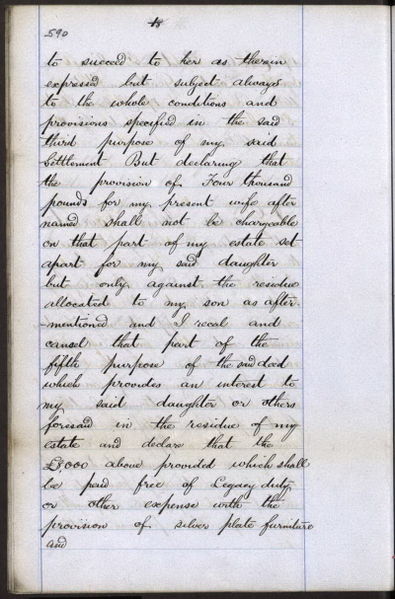 590
18
to succeed to her as therein
expressed but subject always
to the whole conditions and
provisions specified in the said
third purpose of my said
Settlement But declaring that
the provision of Four thousand
pounds for my present wife after
named shall not be chargeable
on that part of my estate set
apart for my said daughter
but only against the residue
allocated to my son as after-
mentioned and I recal and
cancel that part of the
fifth purpose of the said deed
which provides an interest to
my said daughter or others
foresaid in the residue of my
estate and declare that the
£8000 above provided which shall
be paid free of Legacy duty
or other expense with the
provision of silver plate furniture
and